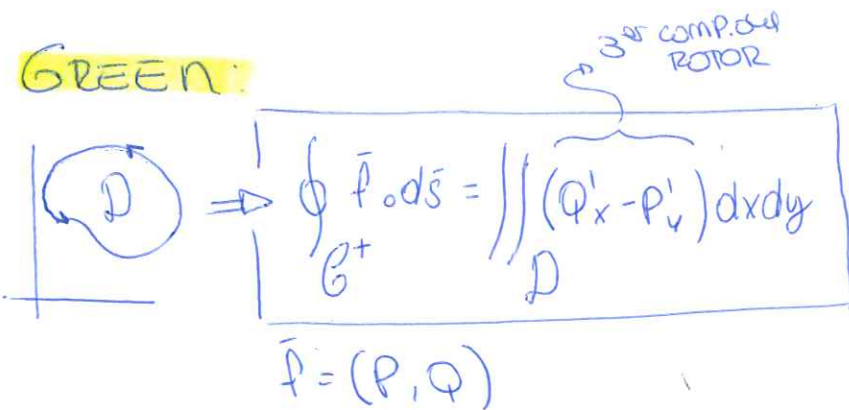 GREEN:
3er COMP. del
ROTOR
D ⇒ ∮ f̄ . ds̄ = ∬ (Q'x - P'y) dxdy
C+ D
f̄ = (P, Q)